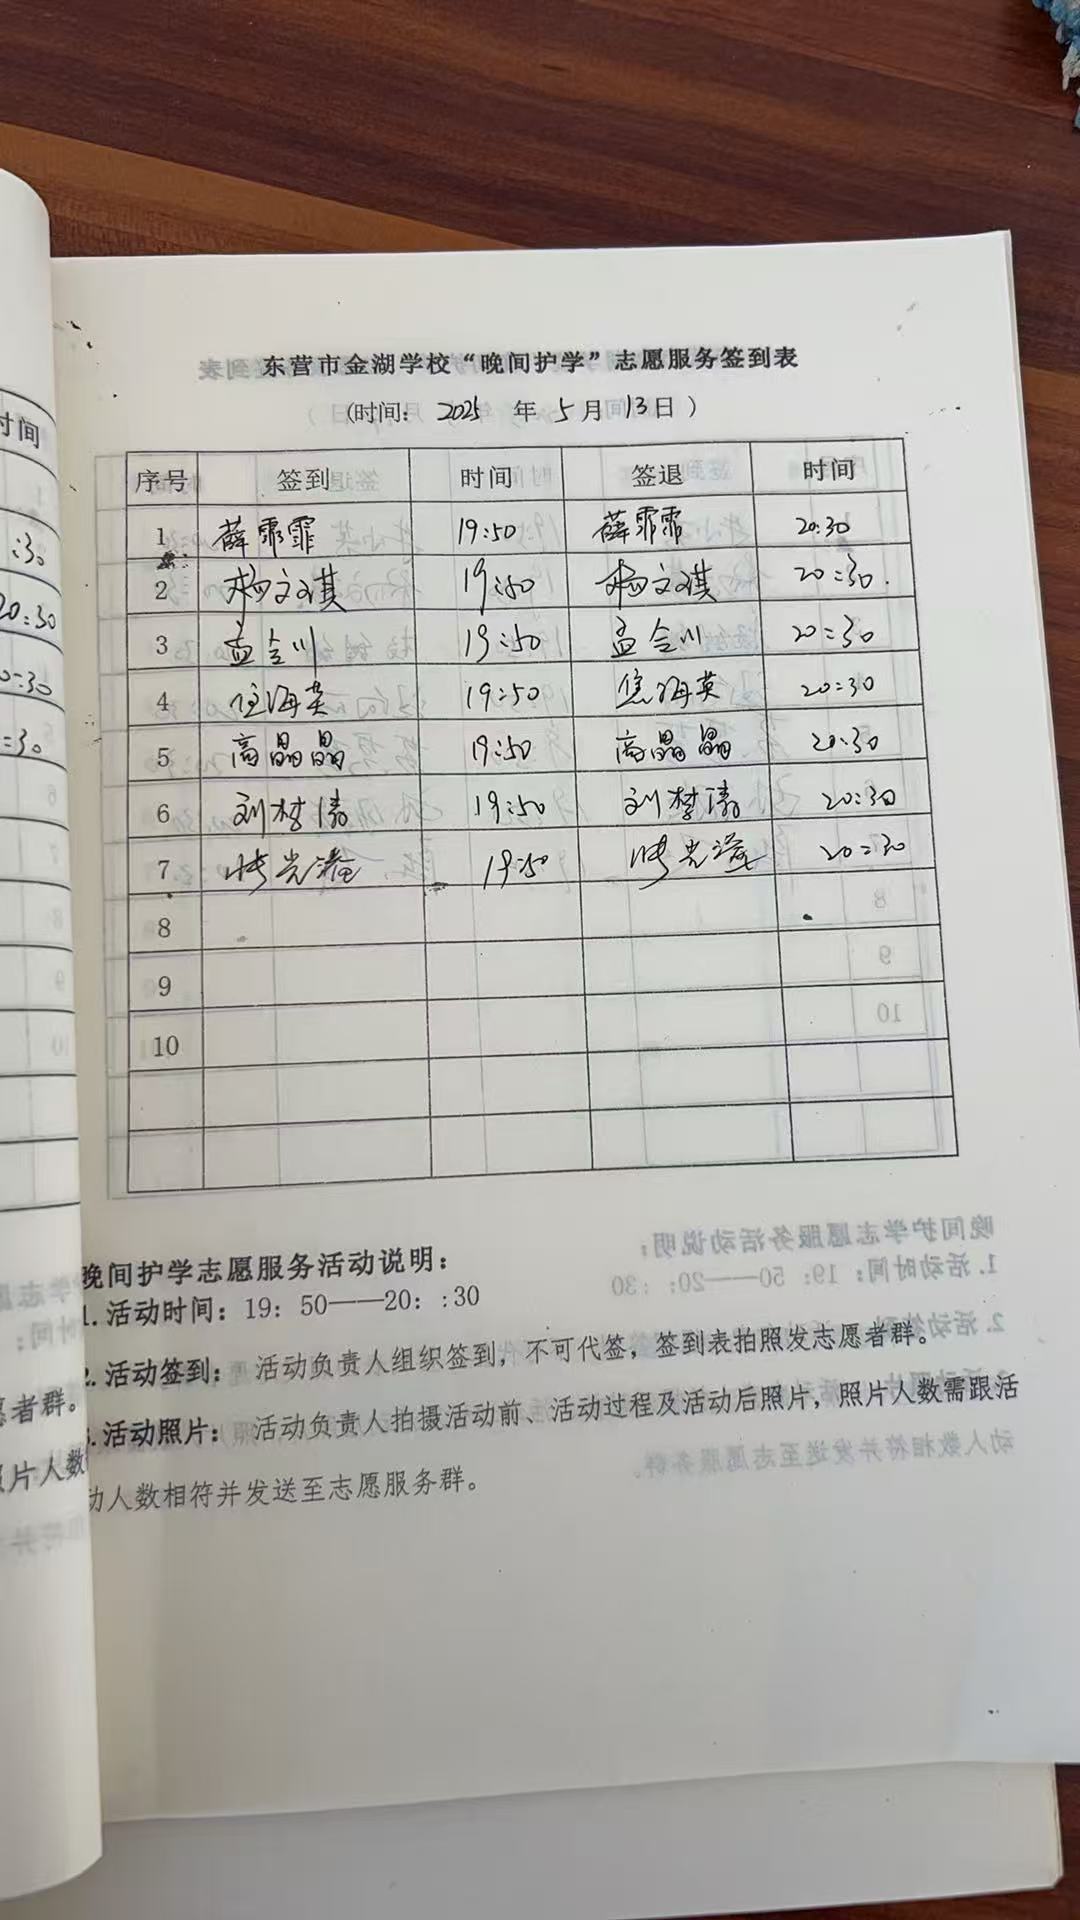 东营市金湖学校“晚间护学”志愿服务签到表
(时间: 2025 年 5 月 13 日 )
序号 签到 时间 签退 时间
1 薛霏霏 19:50 薛霏霏 20:30
2 杨文琪 19:50 杨文琪 20:30
3 孟会川 19:50 孟会川 20:30
4 焦海英 19:50 焦海英 20:30
5 高晶晶 19:50 高晶晶 20:30
6 刘梦涛 19:50 刘梦涛 20:30
7 19:50 20:30
8
9
10
晚间护学志愿服务活动说明:
1.活动时间: 19: 50——20: :30
2.活动签到: 活动负责人组织签到, 不可代签, 签到表拍照发志愿者群。
3.活动照片: 活动负责人拍摄活动前、活动过程及活动后照片, 照片人数需跟活
动人数相符并发送至志愿服务群。
时间
:30
20:30
0:30
:30
者群。
片人数